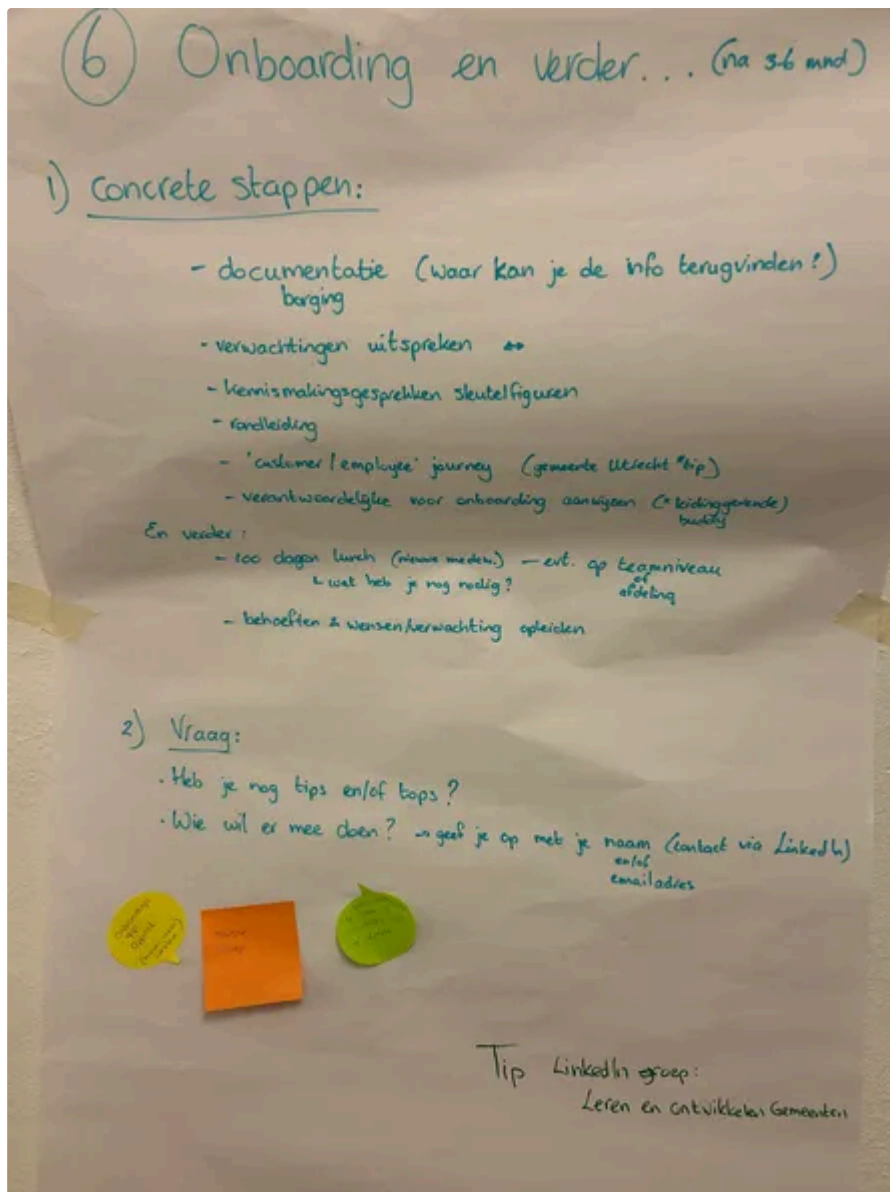 6 Onboarding en verder... (na 3-6 mnd)
1) Concrete stappen:
- documentatie (waar kan je de info terugvinden!)
borging
- verwachtingen uitspreken ↔
- kennismakingsgesprekken sleutelfiguren
- rondleiding
- 'customer/employee' journey (gemeente Utrecht *tip)
- verantwoordelijke voor onboarding aanwijzen (* leidinggevende)
buddy
En verder:
- 100 dagen lunch (nieuwe medew.) — evt. op teamniveau
↳ wat heb je nog nodig? of
afdeling
- behoeften & wensen/verwachting opleiden
2) Vraag:
· Heb je nog tips en/of tops?
· Wie wil er mee doen? → geef je op met je naam (contact via LinkedIn)
en/of
emailadres
Onboardings
app
Tip LinkedIn groep:
Leren en ontwikkelen Gemeenten